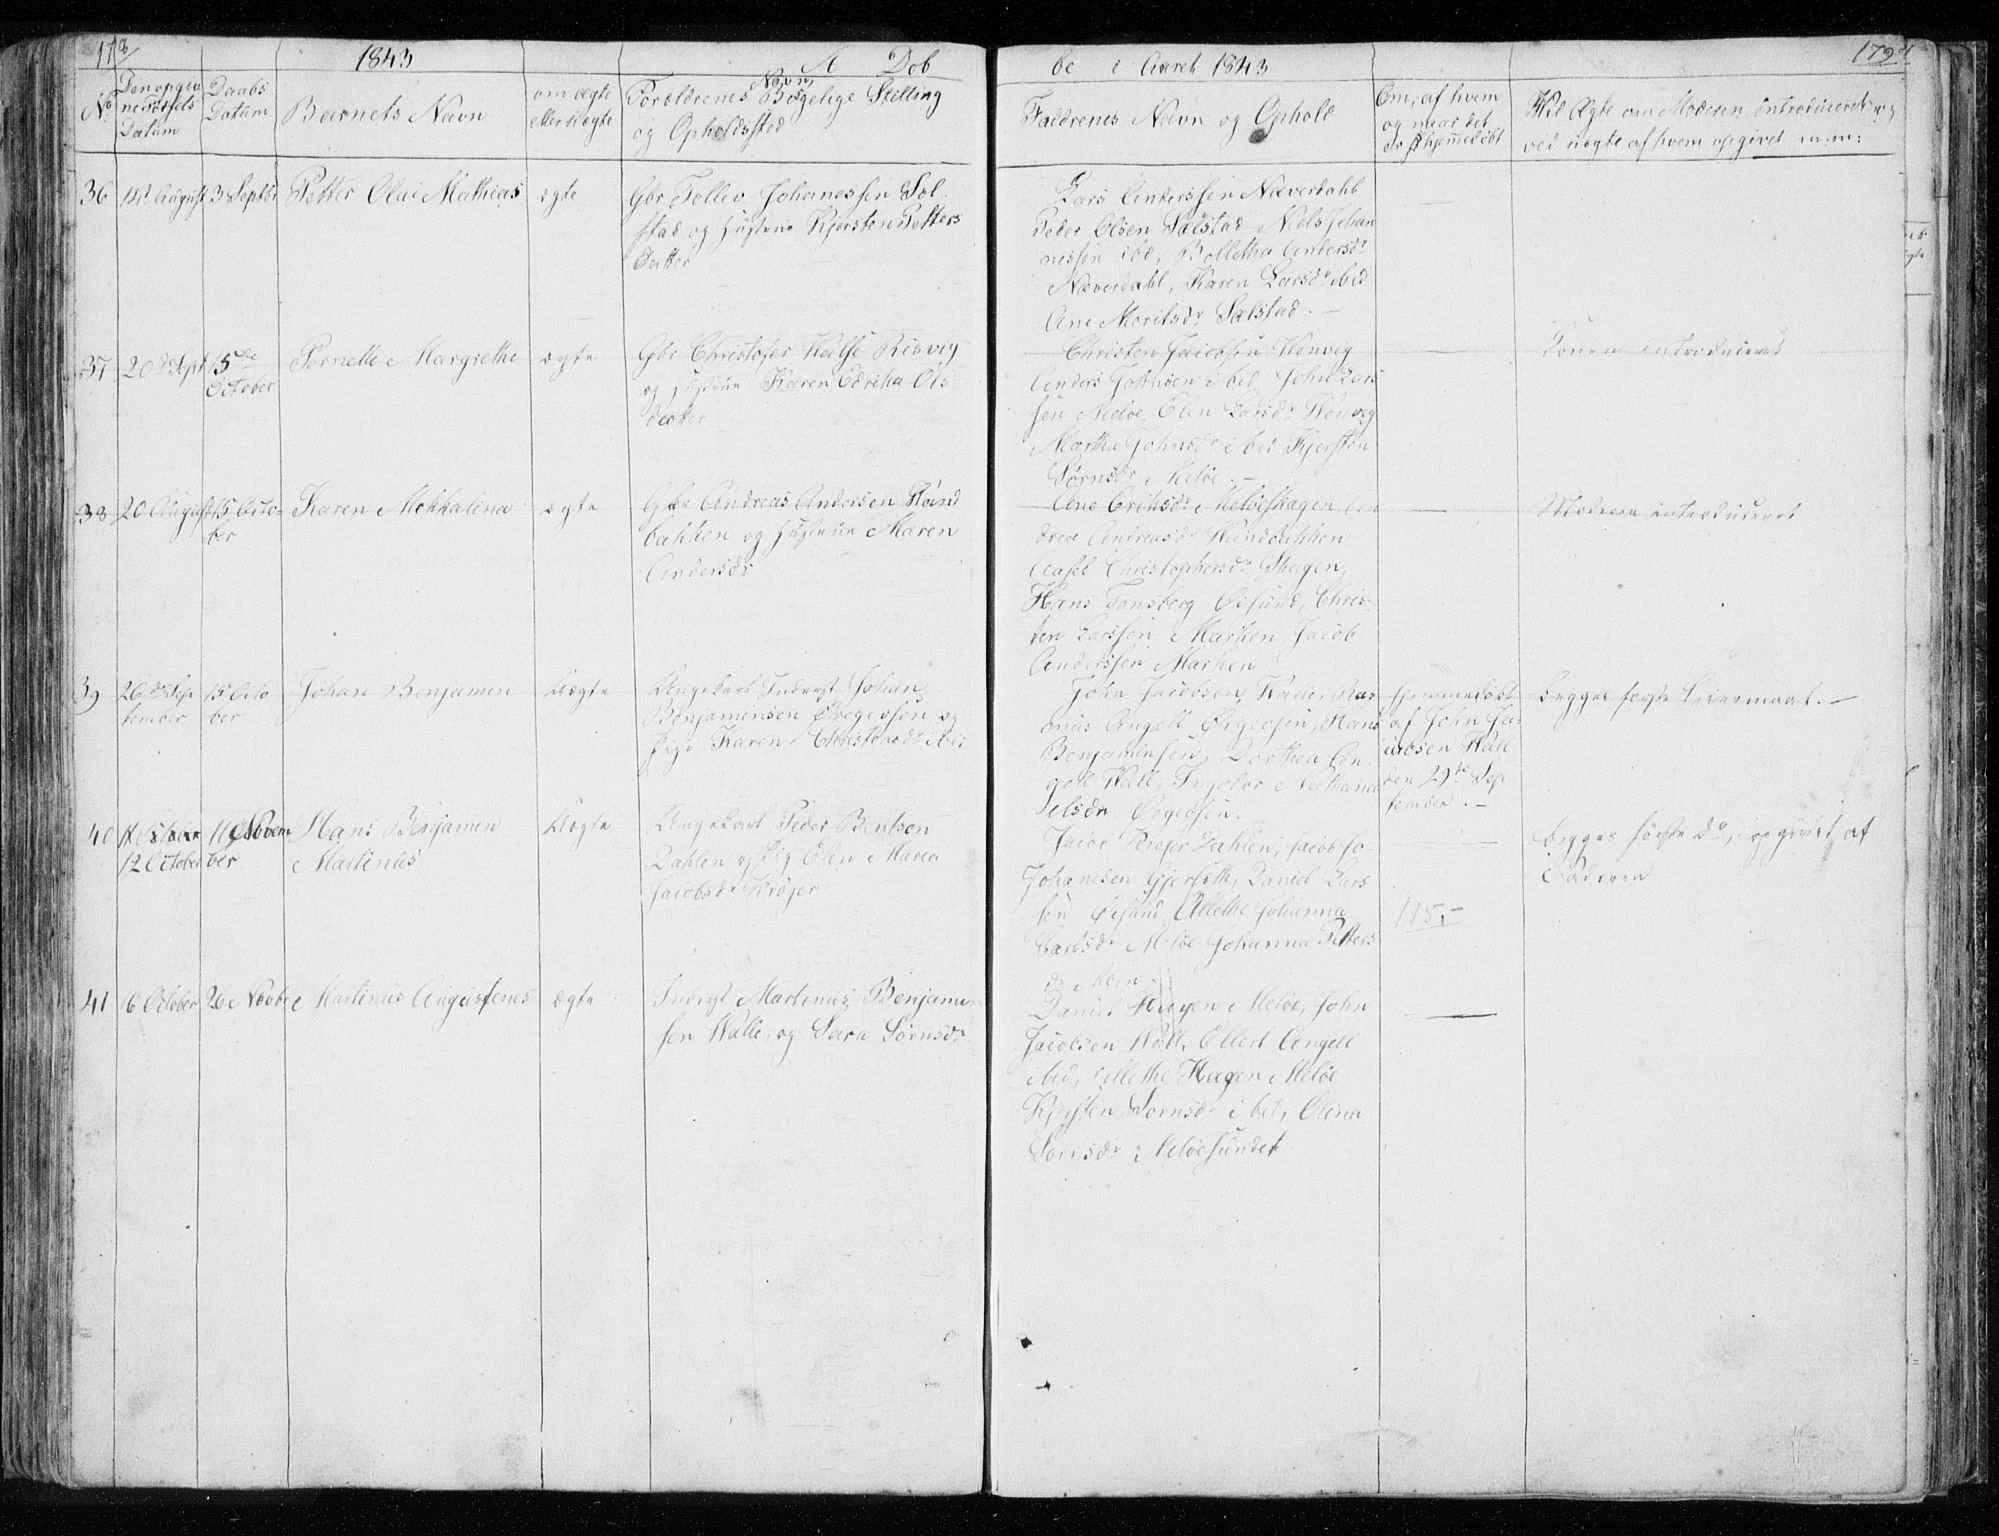 178
1843
A Døb
No
Den opgiv
ne Fødsels
Datum
Daabs
Datum
Barnets Navn
om ægte
eller Uægte
Forældrenes Navn, Borgelige Stilling
og Opholdssted
36
14d August
3 Septbr
Petter Olai Mathias
ægte
Gbr Tollev Johanessen Sæl-
stad og Hustrue Kjersten Petters
datter
37
20d Sept
15de
October
Pernelle Margrethe
ægte
Gbr Christofer Halse Risvig
og Hustrue Karen Edrika Ols
datter
38
20 August
15 Octo-
ber
Karen Mekkalina
ægte
Gbr Andreas Andersen
bakken og Hustrue Maren
Andersdr
39
26de Sep
tember
15 Octo
ber
Johan Benjamin
Uægte
Ungekarl Inderst Johan
Benjaminsen Ørgeosen og
Pige Karen Christensdr ibid
40
12 October
11 Novem
ber
Hans Benjamen
Martinus
Uægte
Ungekarl Peder Bentsen
Dahlen og Pig Elen Maria
Jacobsdr Krøger
41
6 October
26 Novbr
Martinus Augustenes
ægte
Inderst Martinus Benjamin
sen Walle, og Sara Sørnsdr
be i Aaret 1843
179
Faddrenes Navn og Ophold
Om, af hvem
og naar det
er hjemmedøbt
Ved Ægte om Moderen introduceret og
ved uægte af hvem opgivet m:m:
Lars Anderssen Næverdahl
Peder Olsen Sælstad Niels Johan
nessen ibd, Bollethe Andersdr
Næverdahl, Karen Larsdr ibid
Ane Moritsdr Sælstad. —
Christen Jacobsen Wenvig
Anders Johnsen ibid John Lars
sen Meløe, Elen Larsdr Wenvig
Martha Johnsdr ibid Kjersten
Sørnsdr Meløe. —
Konen introduceret
Ane Eriksdr Meløeshagen, An
drea Andreasdr
Aasel Christophersdr Skagen,
Hans Tønsberg Øesund, Chris-
ten Larssen Marken, Jacob
Anderssen Marken
Moderen introduceret
John Jacobsen Walle, Ras
mus Angell Ørgeosen, Hans
Benjaminsen, Dorthea An-
gell Wall, Ingebor Nathana
elsdr Ørgeosen.
hjemmedøbt
af John Ja-
cobsen Wall
den 29de Sep
tember. —
begges første Leiermaal. —
Jacob Krøger Dahlen, Jacob Jo-
Johansen Gjersøth, Daniel Lars
sen Øesund, Allethe Johanna
Larsdr Meløe Johanna Petters
dr Moen.
115,-
begges første do, opgivet af
Faderen
Daniel Hagen Meløe, John
Jacobsen Wall, Ellert Angell
ibid, Allethe Hagen Meløe
Kjersten Sørnsdr ibid, Olina
Sørnsdr Meløesundet